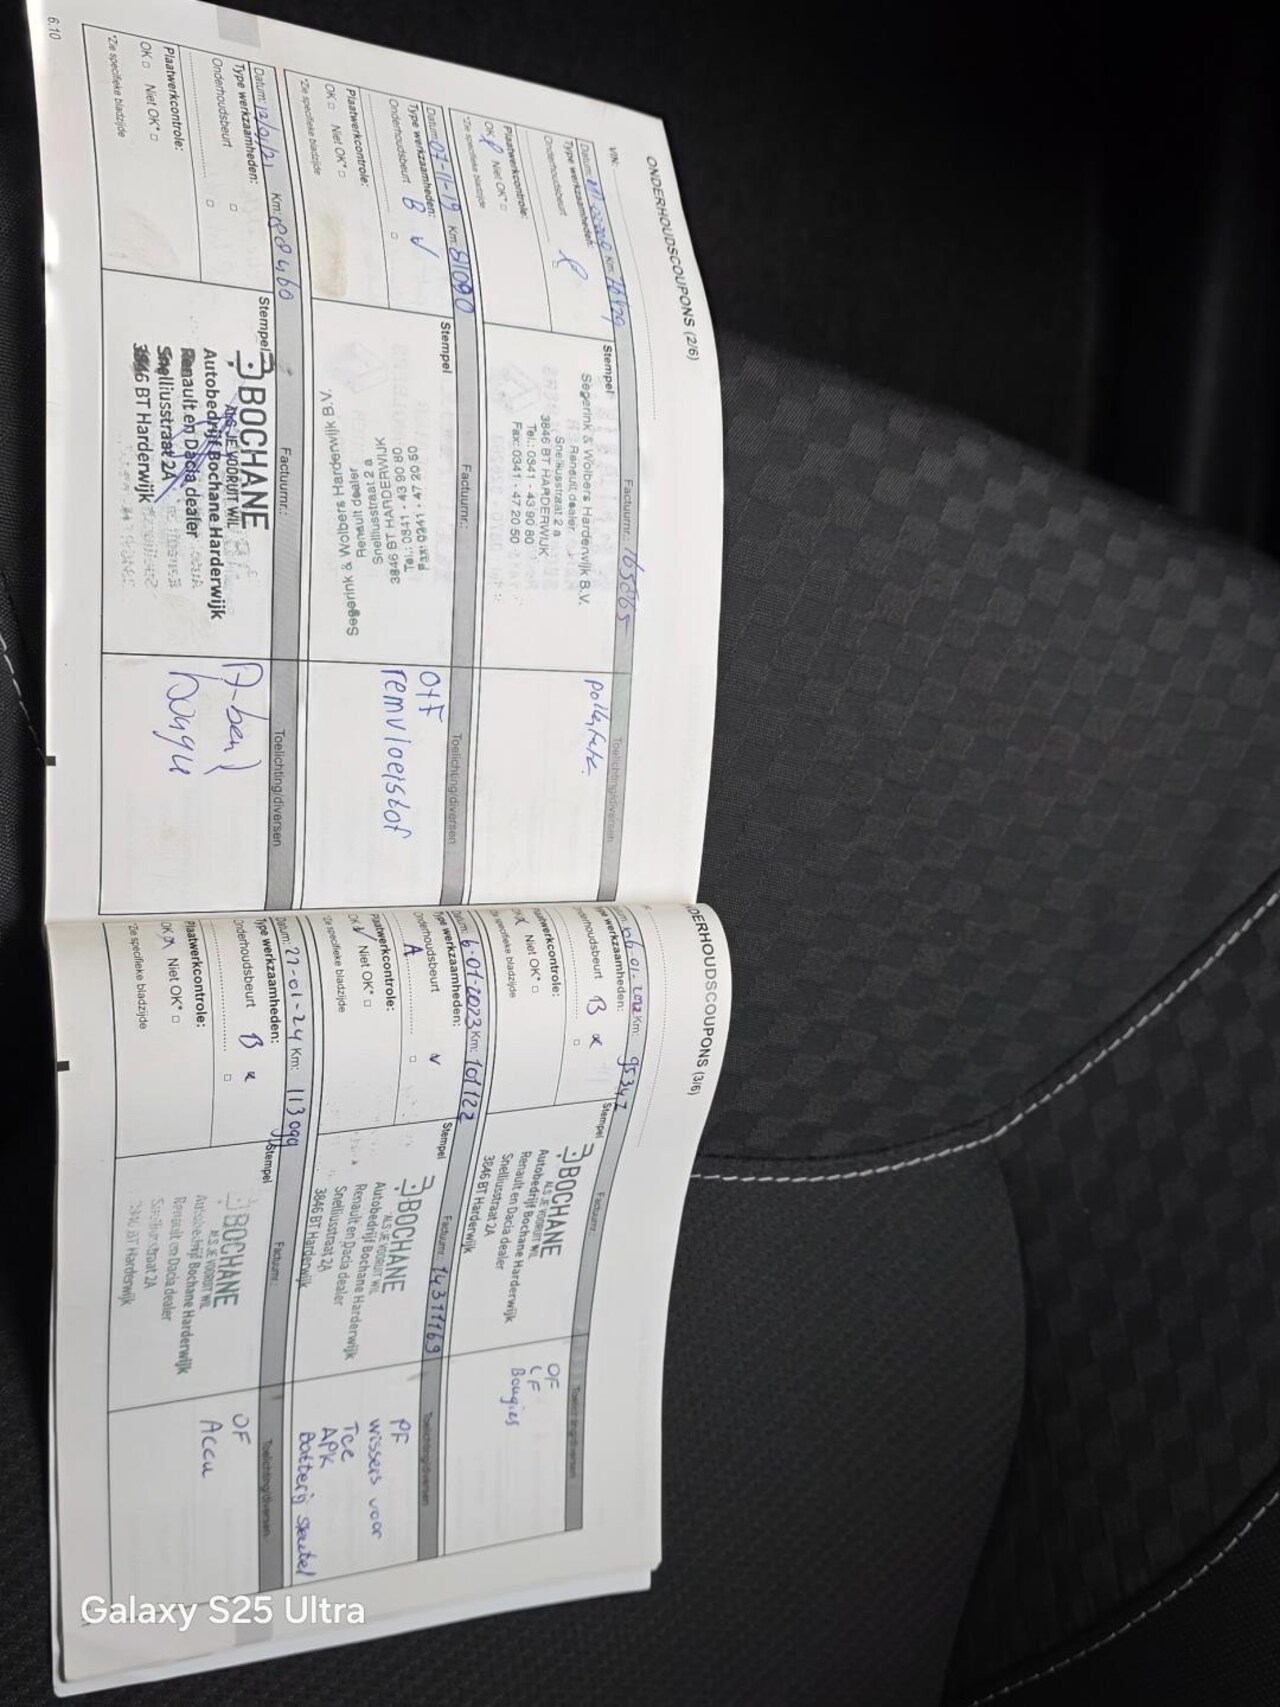 ONDERHOUDSCOUPONS (2/6)
VIN:
Datum: Km: 76829
Type werkzaamheden:
Onderhoudsbeurt
Plaatwerkcontrole:
OK Niet OK*
*Zie specifieke bladzijde
Stempel
Factuurnr.: 165865
Segerink & Wolbers Harderwijk B.V.
Renault dealer
Snelliusstraat 2 a
3846 BT HARDERWIJK
Tel.: 0341 - 43 90 80
Fax: 0341 - 47 20 50
Toelichting/diversen
Datum: 07-11-19 Km: 81090
Type werkzaamheden:
Onderhoudsbeurt B
Plaatwerkcontrole:
OK Niet OK*
*Zie specifieke bladzijde
Stempel
Factuurnr.:
Segerink & Wolbers Harderwijk B.V.
Renault dealer
Snelliusstraat 2 a
3846 BT HARDERWIJK
Tel.: 0341 - 43 90 80
Fax: 0341 - 47 20 50
Toelichting/diversen
remvloeistof
Datum: 12/01/21 Km:
Type werkzaamheden:
Onderhoudsbeurt
Plaatwerkcontrole:
OK Niet OK*
*Zie specifieke bladzijde
Stempel
Factuurnr.:
BOCHANE
ALS JE VOORUIT WIL
Autobedrijf Bochane Harderwijk
Renault en Dacia dealer
Snelliusstraat 2A
3846 BT Harderwijk
Toelichting/diversen
6.10
ONDERHOUDSCOUPONS (3/6)
06-01-2022 Km: 95347
werkzaamheden:
Onderhoudsbeurt B
Plaatwerkcontrole:
OK Niet OK*
*Zie specifieke bladzijde
Stempel
Factuurnr.:
BOCHANE
ALS JE VOORUIT WIL
Autobedrijf Bochane Harderwijk
Renault en Dacia dealer
Snelliusstraat 2A
3846 BT Harderwijk
Toelichting/diversen
OF
LF
Bougies
Datum: 6-01-2023 Km: 101122
Type werkzaamheden:
Onderhoudsbeurt
A
Plaatwerkcontrole:
OK Niet OK*
*Zie specifieke bladzijde
Stempel
Factuurnr.: 14311169
BOCHANE
ALS JE VOORUIT WIL
Autobedrijf Bochane Harderwijk
Renault en Dacia dealer
Snelliusstraat 2A
3846 BT Harderwijk
Toelichting/diversen
PF
wissers voor
Tce
APK
Batterij sleutel
Datum: 27-01-24 Km: 113099
Type werkzaamheden:
Onderhoudsbeurt B
Plaatwerkcontrole:
OK Niet OK*
*Zie specifieke bladzijde
Stempel
Factuurnr.:
BOCHANE
ALS JE VOORUIT WIL
Autobedrijf Bochane Harderwijk
Renault en Dacia dealer
Snelliusstraat 2A
3846 BT Harderwijk
Toelichting/diversen
OF
Accu
Galaxy S25 Ultra